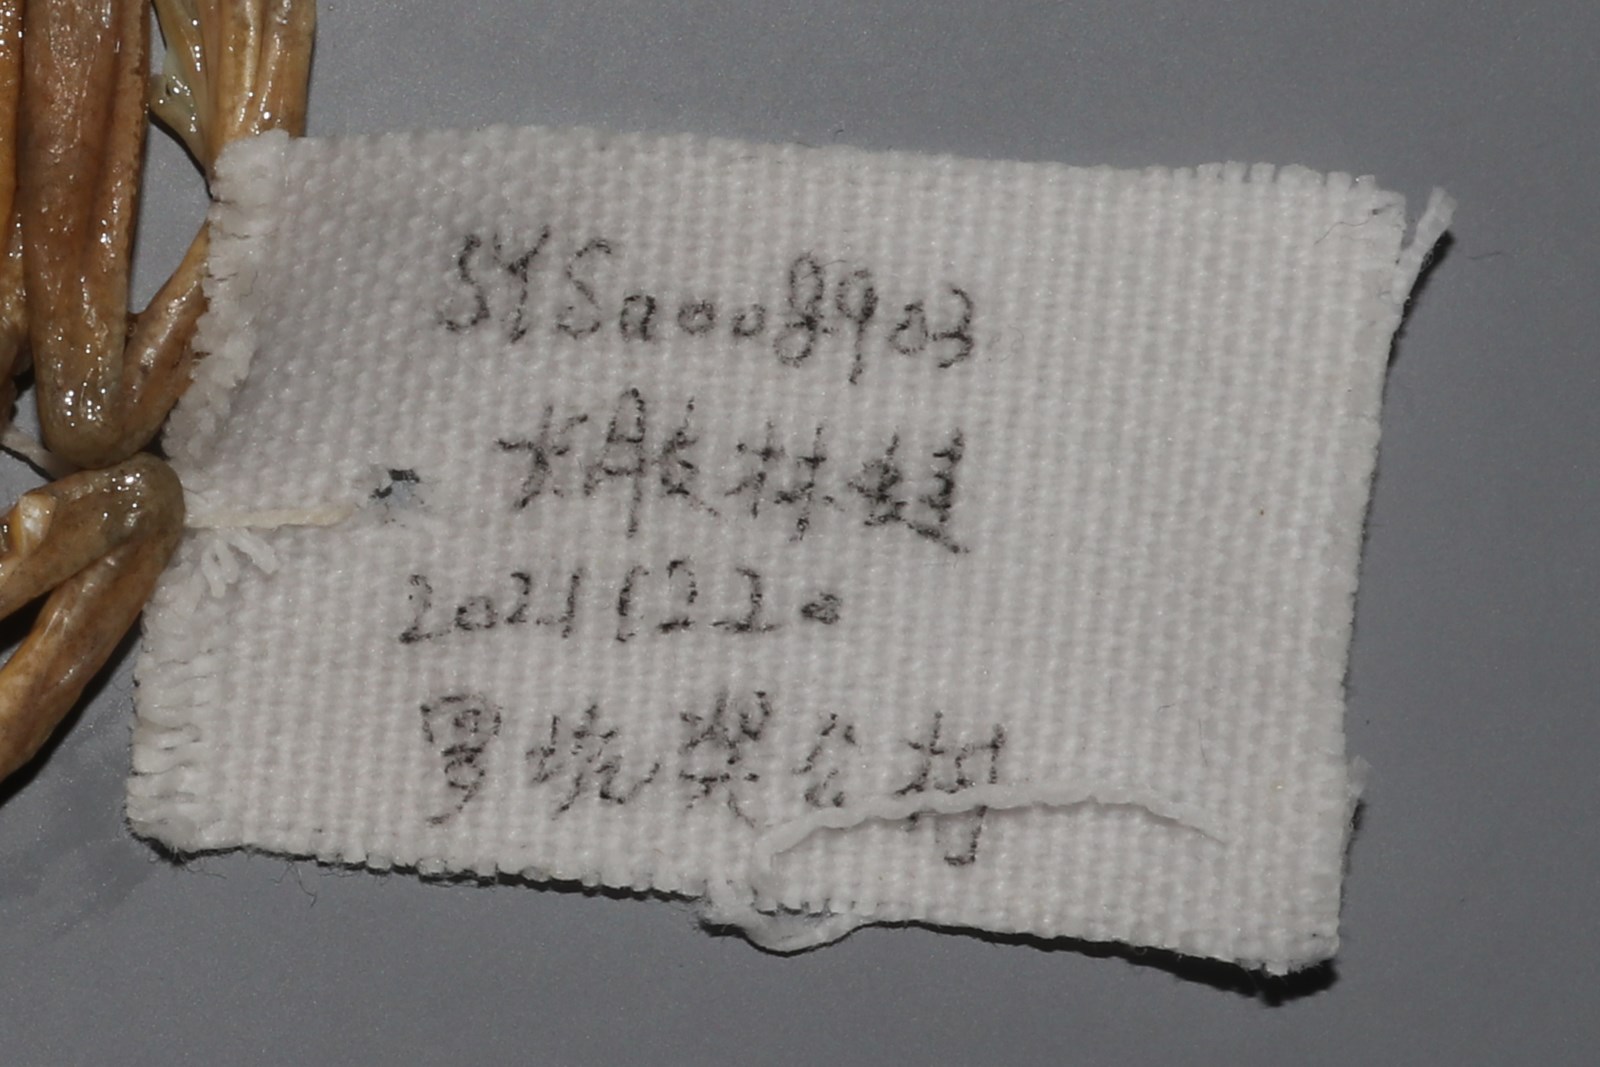 SYSa008903
长肢林蛙
20211220
罗坑架公村